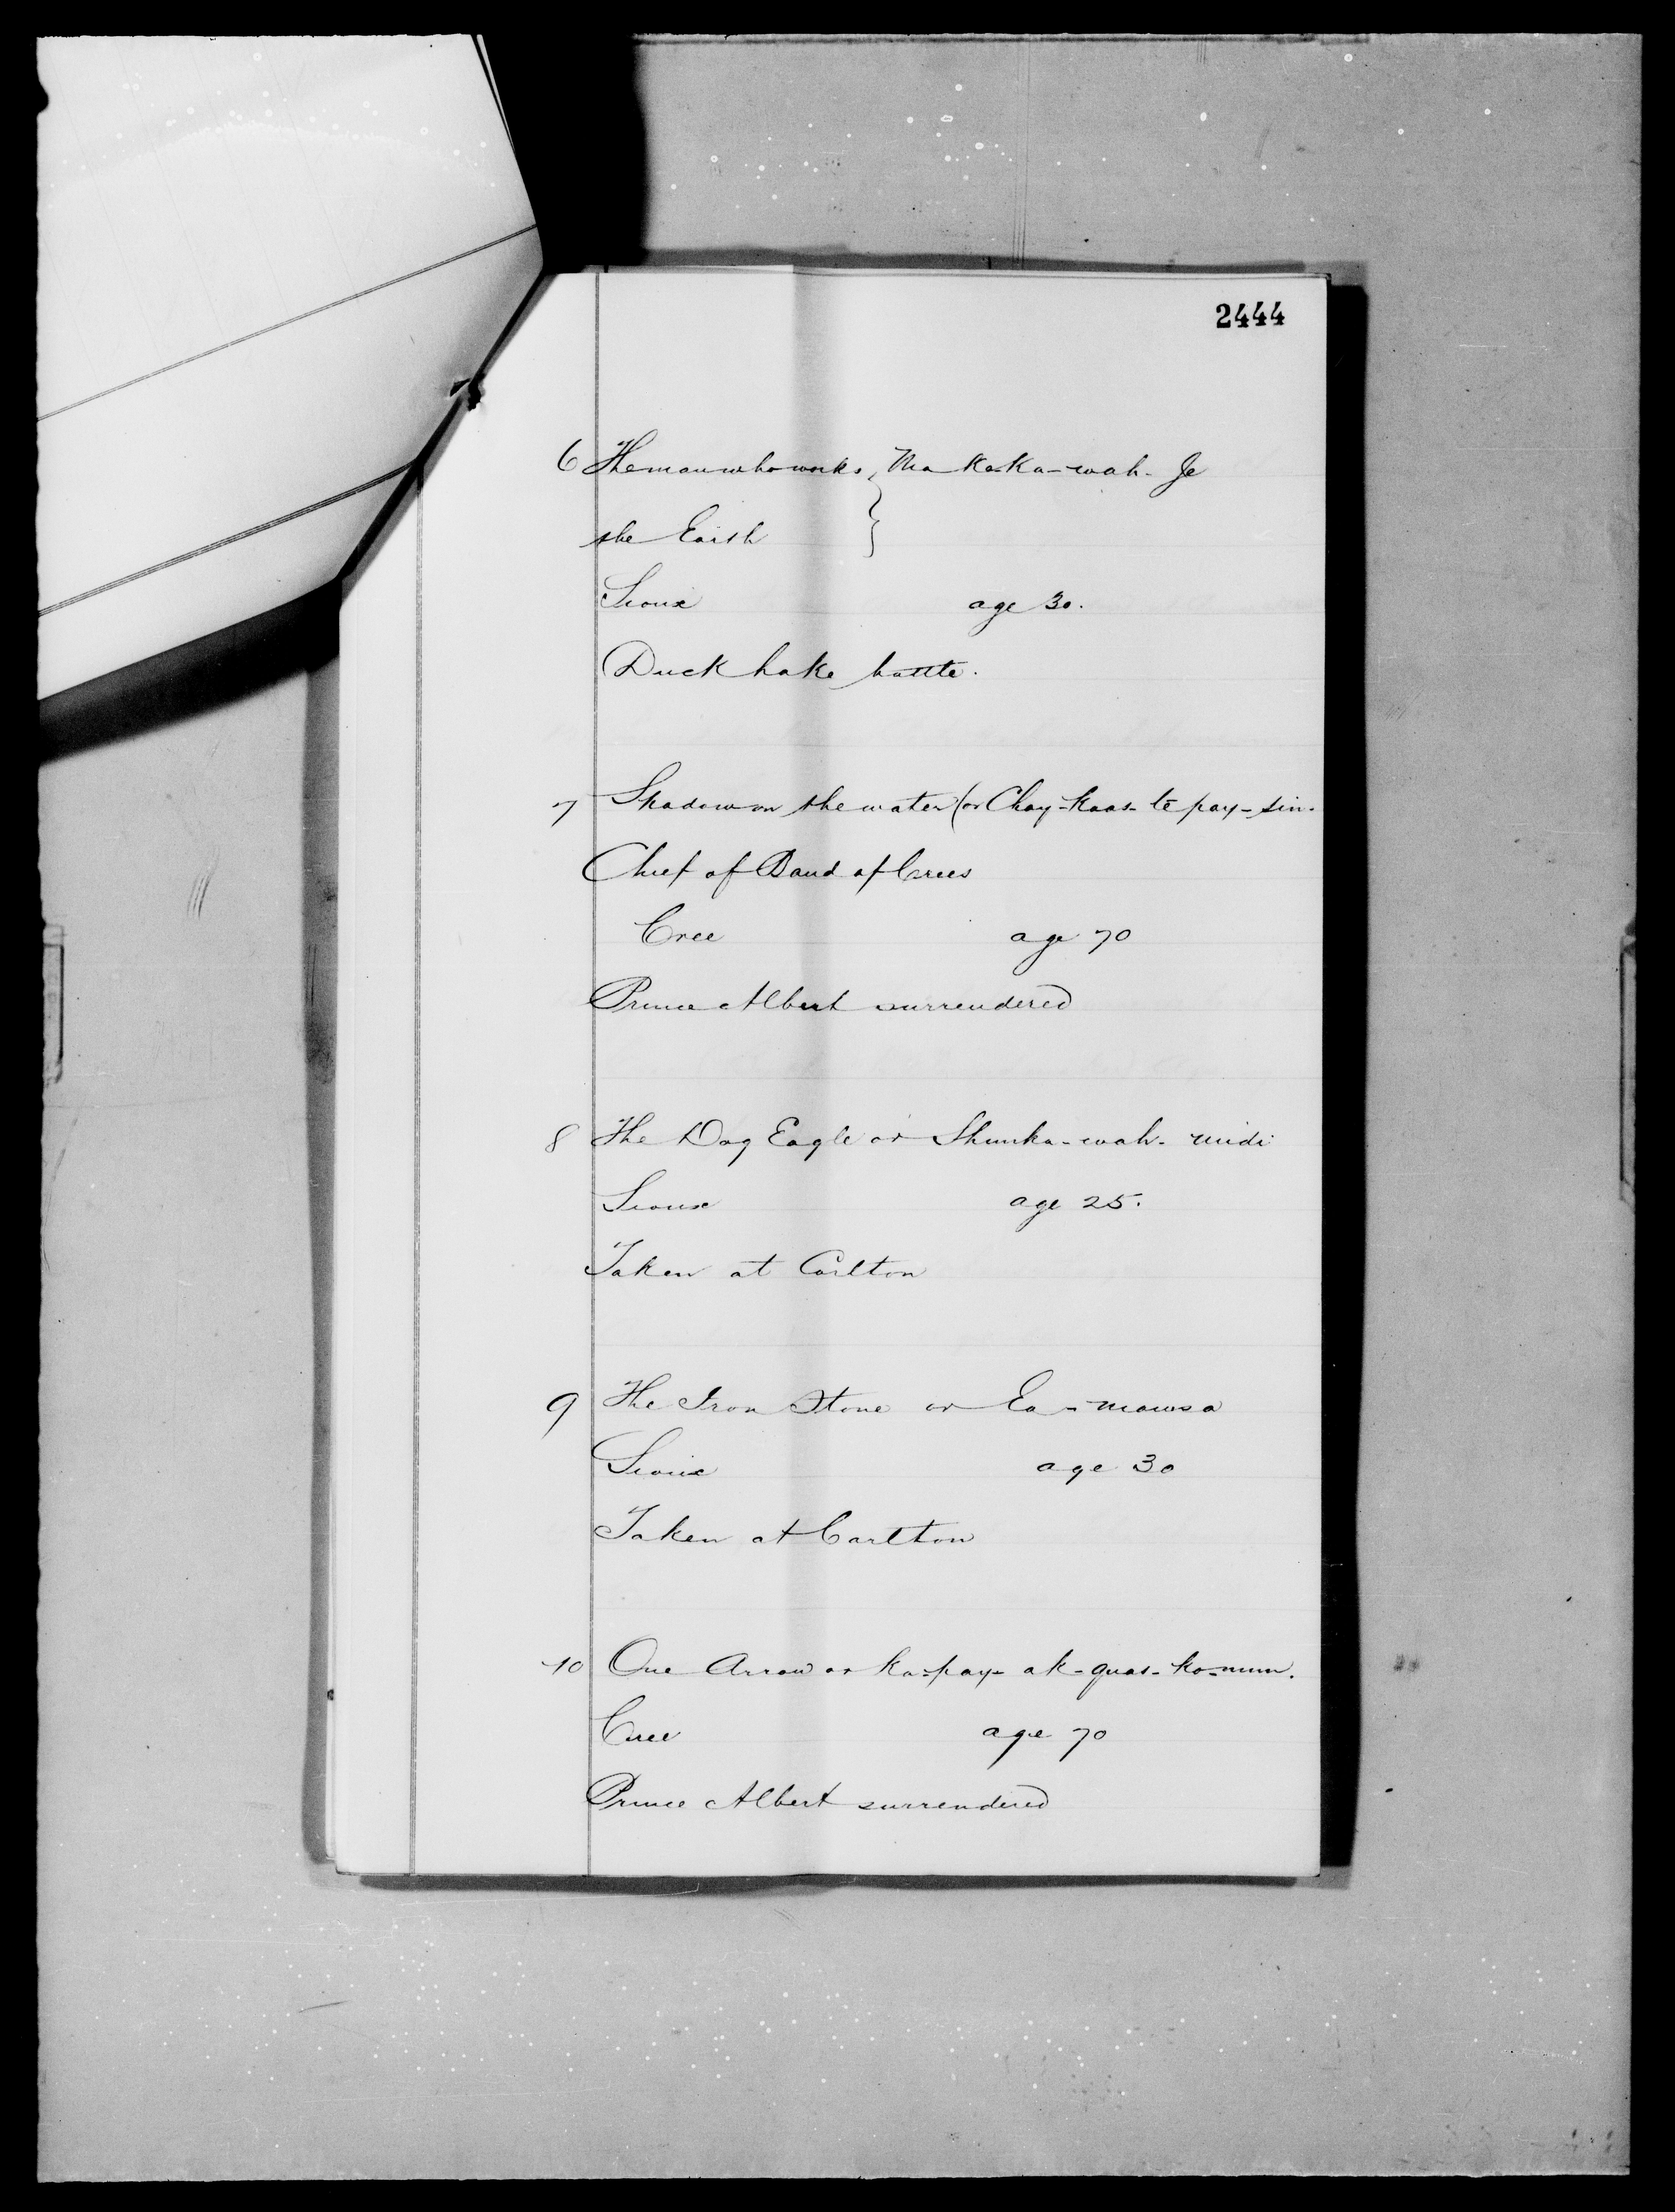 2444
6 The man who works } Ma Ka Ka-wah-Je
the Earth
Sioux age 30.
Duck Lake battle.
7 Shadow on the water (or Chay-Kaas-te pay-sin.
Chief of Band of Crees
Cree age 70
Prince Albert surrendered
8 The Dog Eagle or Shunka-wah-midi
Sioux age 25.
Taken at Carlton
9 The Iron Stone or Ea-mawsa
Sioux age 30
Taken at Carlton
10 One Arrow or Ka-pay-ak-quas-ko-num.
Cree age 70
Prince Albert surrendered